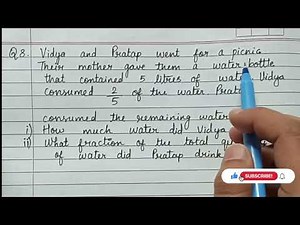 Q8. Vidya and Pratap went for a picnic
Their mother gave them a water bottle
that contained 5 litres of water. Vidya
consumed 2/5 of the water Prata
consumed the remaining water
i) How much water did Vidya
ii) What fraction of the total qu
of water did Pratap drink